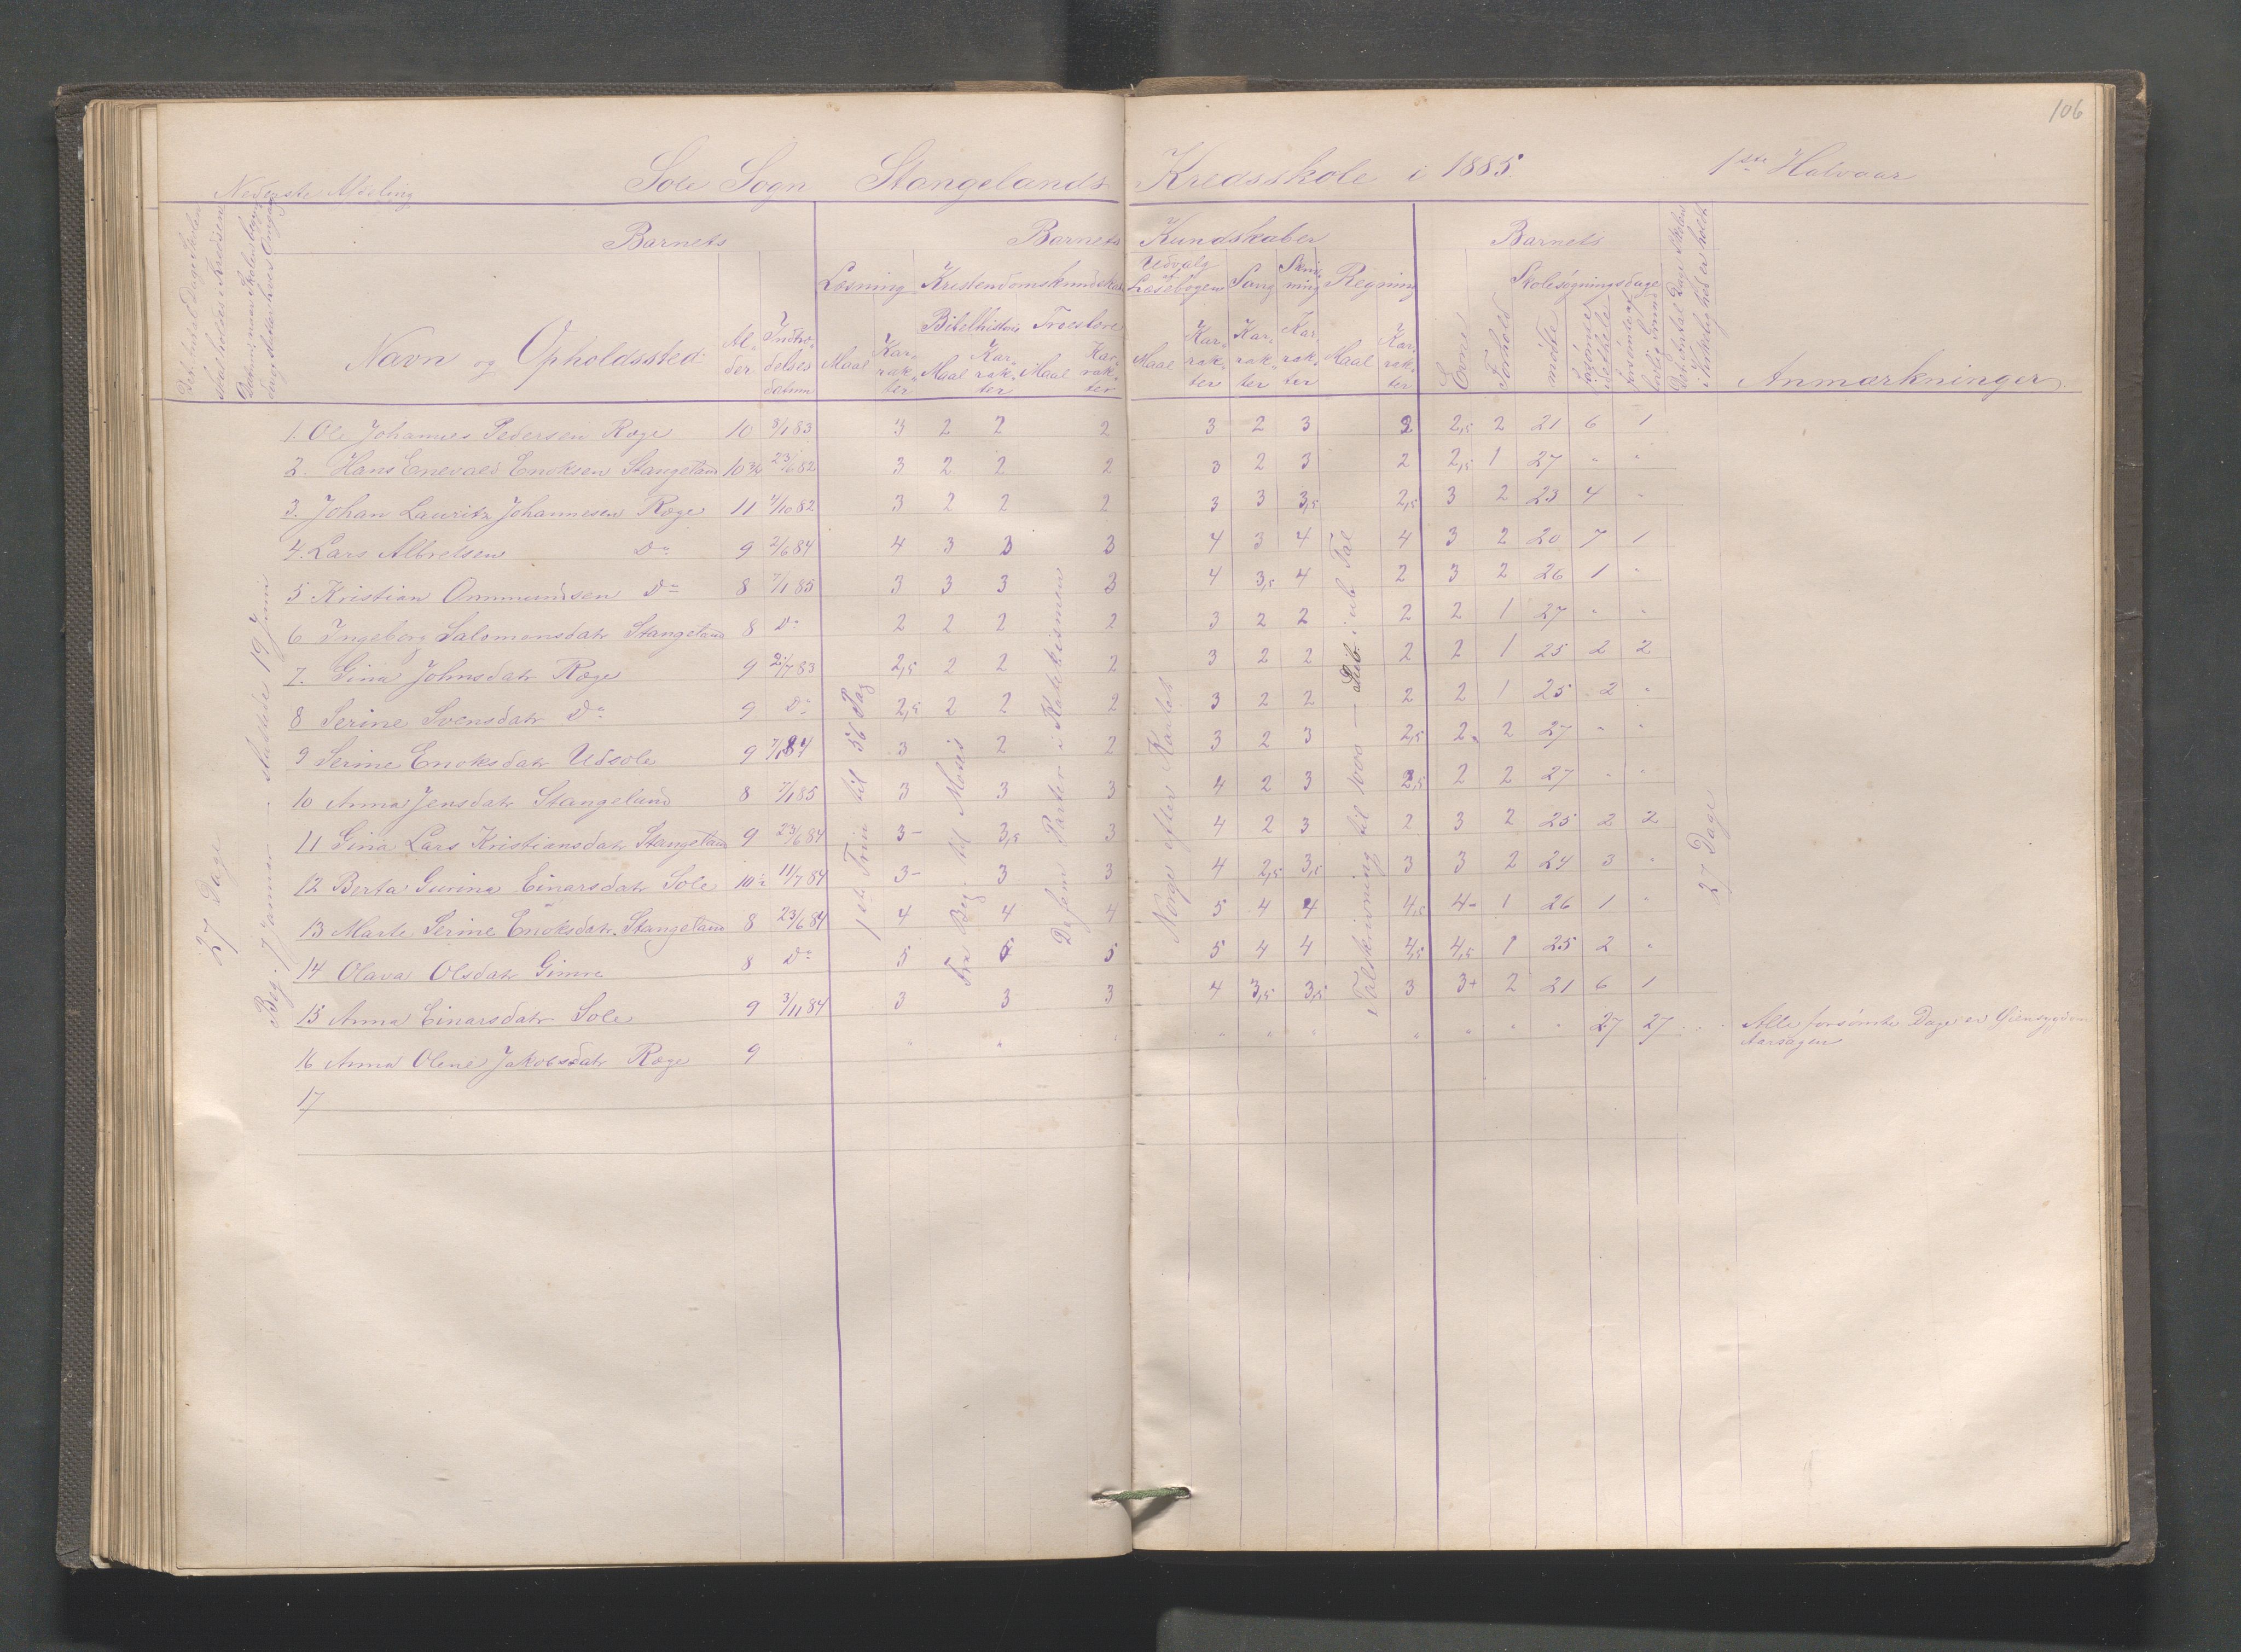 106
Nederste Afdeling
Sole Sogn Stangelands Kredsskole i 1885. 1ste Halvaar
Barnets
Barnets Kundskaber
Barnets
Læsning Kristendomskundskab
Udvalg af Læsebogen Sang Skrivning Regning
Skolesøgningsdage
Bibelhistorie Troeslære
Navn og Opholdssted
Alder Indtrædelsesdatum Maal Karakter Maal Karakter Maal Karakter Maal Karakter Karakter Karakter Maal Karakter Evne Forhold mødte Anmærkninger.
1. Ole Johannes Pedersen Ræge 10 8/1 83 3 2 2 2 3 2 3 2 2,5 2 21 6 1
2. Hans Enevald Enoksen Stangeland 10 3/4 23/6 82 3 2 2 2 3 2 3 2 2,5 1 27 " "
3. Johan Lauritz Johannesen Ræge 11 4/10 82 3 2 2 2 3 3 3,5 2,5 3 2 23 4 "
4. Lars Albretsen Do 9 2/6 84 4 3 3 3 4 3 4 4 3 2 20 7 1
5 Kristian Ommundsen Do 8 7/1 85 3 3 3 3 4 3,5 4 2 3 2 26 1 "
6 Ingeborg Salomonsdatr Stangeland 8 Do 2 2 2 2 3 2 2 2 2 1 27 " "
7. Gina Johnsdatr Ræge 9 2/7 83 2,5 2 2 2 3 2 2 2 2 1 25 2 2
8 Serine Svensdatr Do 9 Do 2,5 2 2 2 3 2 2 2 2 1 25 2 "
9 Serine Enoksdatr Udsole 9 7/1 84 3 2 2 3 2 3 2,5 2 2 27 " "
10 Anna Jensdatr Stangeland 8 7/1 85 3 3 3 4 2 3 2,5 2 2 27 " "
11 Gina Lars Kristiansdatr Stangeland 9 23/6 84 3- 3,5 3 4 2 3 2 3 2 25 2 2
12 Berta Gurina Einarsdatr Sole 10 1/2 11/7 84 3- 3 3 4 2,5 3,5 3 3 2 24 3 "
13 Marte Serine Enoksdatr. Stangeland 8 23/6 84 4 4 4 5 4 4 4,5 4- 1 26 1 "
14 Olava Olsdatr Gimre 8 Do 5 5 5 5 4 4 4,5 4,5 1 25 2 "
15 Anna Einarsdatr Sole 9 3/11 84 3 3 3 4 3,5 3,5 3 3+ 2 21 6 1
16 Anna Olene Jakobsdatr Ræge 9 " " " " " " " " " 27 27 Alle forsømte Dage er Øiensygdom Aarsagen
17
27 Dage
Beg. 7 Januar — sluttedes 19 Juni
1ste Trin til 56 Pag
Fra Beg. til Moses
De fem Parter i Katekismen
Norge efter Kartet
Talskrivning til 1000 — Sub. i ub. Tal
27 Dage